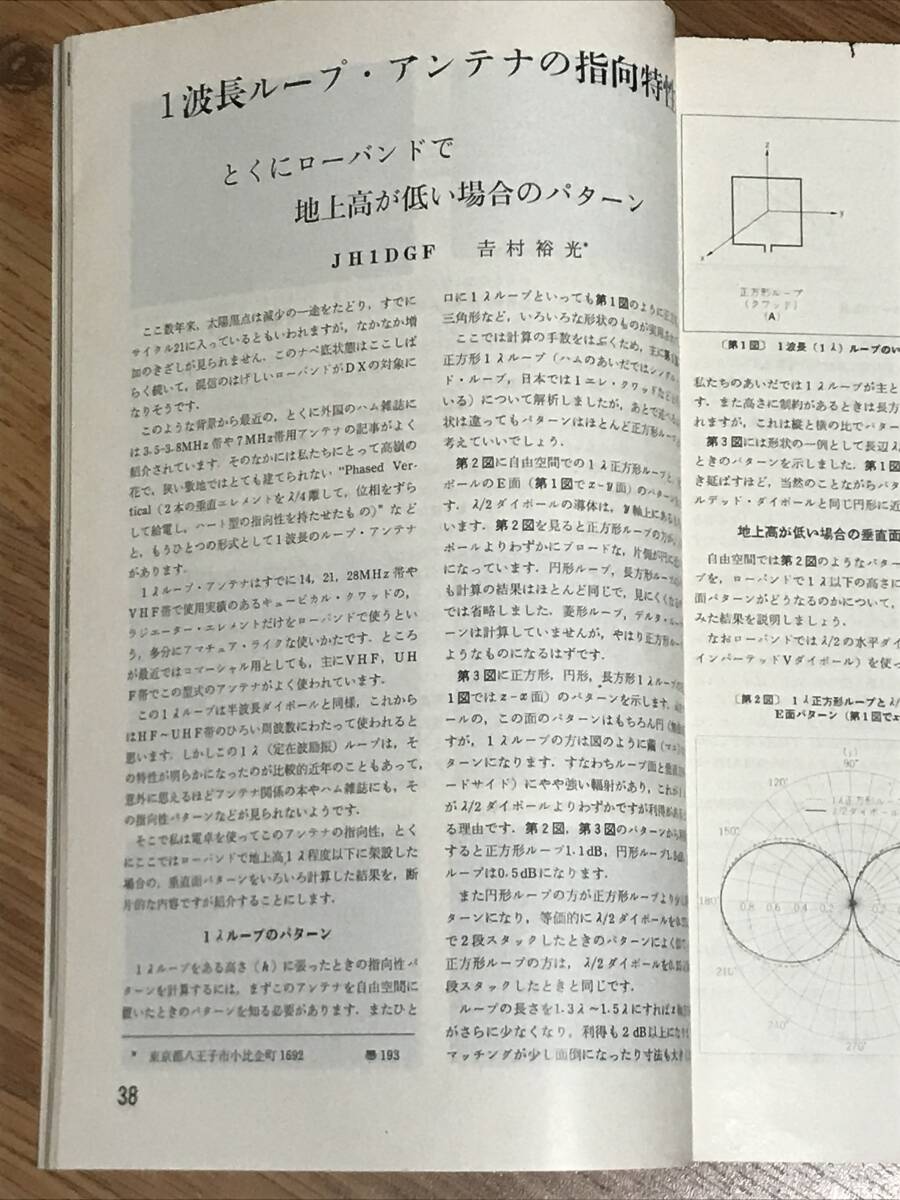 1波長ループ・アンテナの指向特性
とくにローバンドで
地上高が低い場合のパターン
JH1DGF 吉村裕光*
ここ数年来，太陽黒点は減少の一途をたどり，すでに
サイクル21に入っているともいわれますが，なかなか増
加のきざしが見られません．このナベ底状態はここしば
らく続いて，混信のはげしいローバンドがDXの対象に
なりそうです．
このような背景から最近の，とくに外国のハム雑誌に
は3.5-3.8MHz帯や7MHz帯用アンテナの記事がよく
紹介されています．そのなかには私たちにとって高嶺の
花で，狭い敷地ではとても建てられない “Phased Ver-
tical（2本の垂直エレメントをλ/4離して，位相をずら
して給電し，ハート型の指向性を持たせたもの）”など
と，もうひとつの形式として1波長のループ・アンテナ
があります．
1λループ・アンテナはすでに14，21，28MHz帯や
VHF帯で使用実績のあるキュービカル・クワッドの，
ラジエーター・エレメントだけをローバンドで使うとい
う，多分にアマチュア・ライクな使いかたです．ところ
が最近ではコマーシャル用としても，主にVHF，UH
F帯でこの型式のアンテナがよく使われています．
この1λループは半波長ダイポールと同様，これから
はHF～UHF帯のひろい周波数にわたって使われると
思います．しかしこの1λ（定在波励振）ループは，そ
の特性が明らかになったのが比較的近年のこともあって，
意外に思えるほどアンテナ関係の本やハム雑誌にも，そ
の指向性パターンなどが見られないようです．
そこで私は電卓を使ってこのアンテナの指向性，とく
にここではローバンドで地上高1λ程度以下に架設した
場合の，垂直面パターンをいろいろ計算した結果を，断
片的な内容ですが紹介することにします．
1λループのパターン
1λループをある高さ（h）に張ったときの指向性パ
ターンを計算するには，まずこのアンテナを自由空間に
置いたときのパターンを知る必要があります．またひと
* 東京都八王子市小比企町1692 193
38
ロに1λループといっても第1図のように正方
三角形など，いろいろな形状のものが実用
ここでは計算の手数をはぶくため，主に
正方形1λループ（ハムのあいだではシングル
ド・ループ，日本では1エレ・クワッドなど
いる）について解析しましたが，あとで述べる
状は違ってもパターンはほとんど正方形ルー
考えていいでしょう．
第2図に自由空間での1λ正方形ループと，
ポールのE面（第1図でx-y面）のパターン
す．λ/2ダイポールの導体は，y軸上にある
います．第2図を見ると正方形ループの方が，
ポールよりわずかにブロードな，片側が円に
になっています．円形ループ，長方形ループ
も計算の結果はほとんど同じで，見にくくなる
では省略しました．菱形ループ，デルタ・ルー
ーンは計算していませんが，やはり正方形ルー
ようなものになるはずです．
第3図に正方形，円形，長方形1λループの
1図ではz-x面）のパターンを示します．
ールの，この面のパターンはもちろん円
すが，1λループの方は図のように繭（マユ
ターンになります．すなわちループ面と垂直
ードサイド）にやや強い輻射があり，これが
がλ/2ダイポールよりわずかですが利得が
る理由です．第2図，第3図のパターンから
すると正方形ループ1.1dB，円形ループ
ループは0.5dBになります．
また円形ループの方が正方形ループより
ターンになり，等価的にλ/2ダイポールを
で2段スタックしたときのパターンによく
正方形ループの方は，λ/2ダイポールを
段スタックしたときと同じです．
ループの長さを1.3λ～1.5λにすれば
がさらに少なくなり，利得も2dB以上にな
マッチングが少し面倒になったり寸法も大
z
y
x
正方形ループ
（クワッド）
(A)
〔第1図〕 1波長（1λ）ループのい
私たちのあいだでは1λループが主と
す．また高さに制約があるときは長方
れますが，これは縦と横の比でパター
第3図には形状の一例として長辺λ
ときのパターンを示しました．第1図
き延ばすほど，当然のことながらパタ
ルデッド・ダイポールと同じ円形に近
地上高が低い場合の垂直面
自由空間では第2図のようなパター
プを，ローバンドで1λ以下の高さに
面パターンがどうなるのかについて，
みた結果を説明しましょう．
なおローバンドではλ/2の水平ダイ
インバーテッドVダイポール）を使っ
〔第2図〕 1λ正方形ループとλ/
E面パターン（第1図でx
90°
120°
1λ正方形ルー
λ/2ダイポール
150°
180°
0.8 0.6 0.4 0.2
0.2
210°
240°
270°